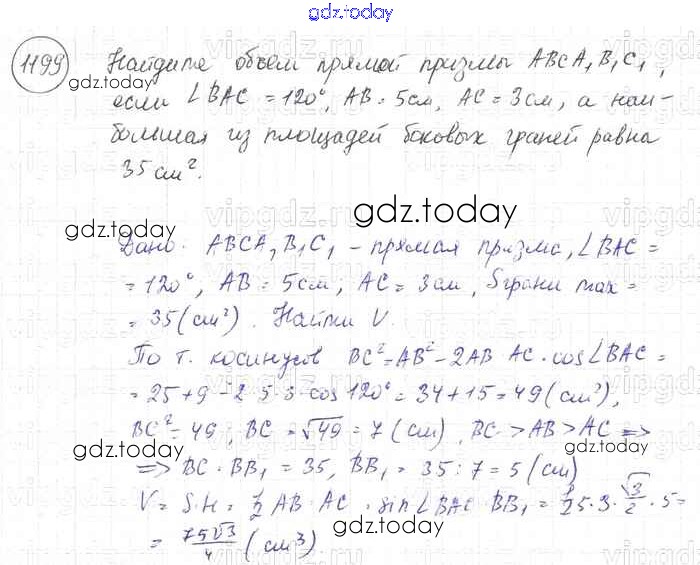 gdz.today
1199 Найдите объем прямой призмы ABCA₁B₁C₁,
gdz.today
если ∠BAC = 120°, AB = 5см, AC = 3см, а наи-
большая из площадей боковых граней равна
35 см².
gdz.today
gdz.today
Дано: ABCA₁B₁C₁ - прямая призма, ∠BAC =
= 120°, AB = 5см, AC = 3см, Sграни max =
= 35 (см²). Найти V.
gdz.today
По т. косинусов BC² = AB² - 2AB AC · cos∠BAC =
= 25 + 9 - 2·5·3·cos120° = 34 + 15 = 49 (см²),
BC² = 49, BC = √49 = 7 (см), BC > AB > AC ⇒
gdz.today
gdz.today
⇒ BC · BB₁ = 35, BB₁ = 35 : 7 = 5 (см)
V = S·H = 1/2 AB · AC · sin∠BAC · BB₁ = 1/2 5·3·√3/2·5 =
gdz.today
= 75√3/4 (см³).
gdz.today